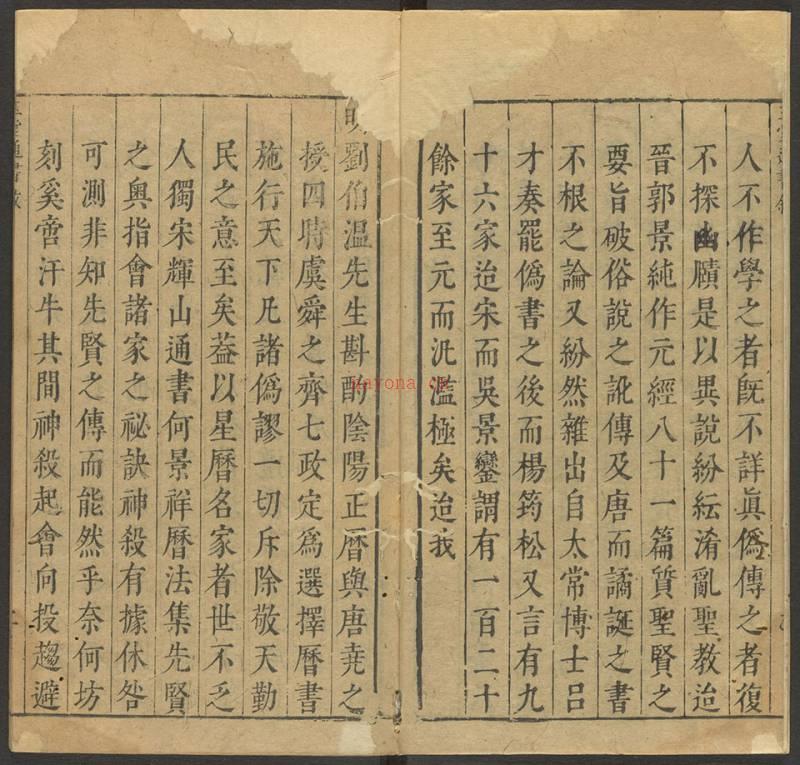 人不作學之者旣不詳眞僞傳之者復
不探幽賾是以異說紛紜淆亂聖教迨
晉郭景純作元經八十一篇質聖賢之
要旨破俗說之訛傳及唐而譎誕之書
不根之論又紛然雜出自太常博士呂
才奏罷僞書之後而楊筠松又言有九
十六家迨宋而吳景鑾謂有一百二十
餘家至元而汎濫極矣迨我
明劉伯溫先生斟酌陰陽正曆與唐堯之
授四時虞舜之齊七政定爲選擇曆書
施行天下凡諸僞謬一切斥除敬天勤
民之意至矣葢以星曆名家者世不乏
人獨宋輝山通書何景祥曆法集先賢
之奧指會諸家之祕訣神殺有據休咎
可測非知先賢之傳而能然乎奈何坊
刻奚啻汗牛其間神殺起會向投趨避